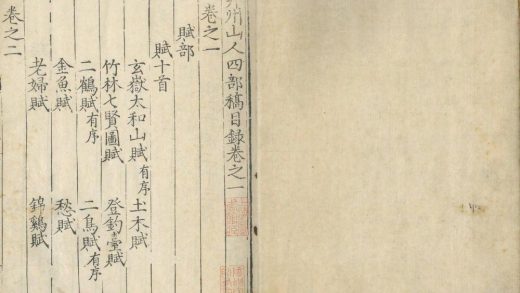 州山人四部稿目錄卷之一
卷之一
賦部
賦十首
玄嶽太和山賦有序 土木賦
竹林七賢圖賦 登釣臺賦
二鶴賦有序 二鳥賦有序
金魚賦 愁賦
老婦賦 錦鷄賦
卷之二